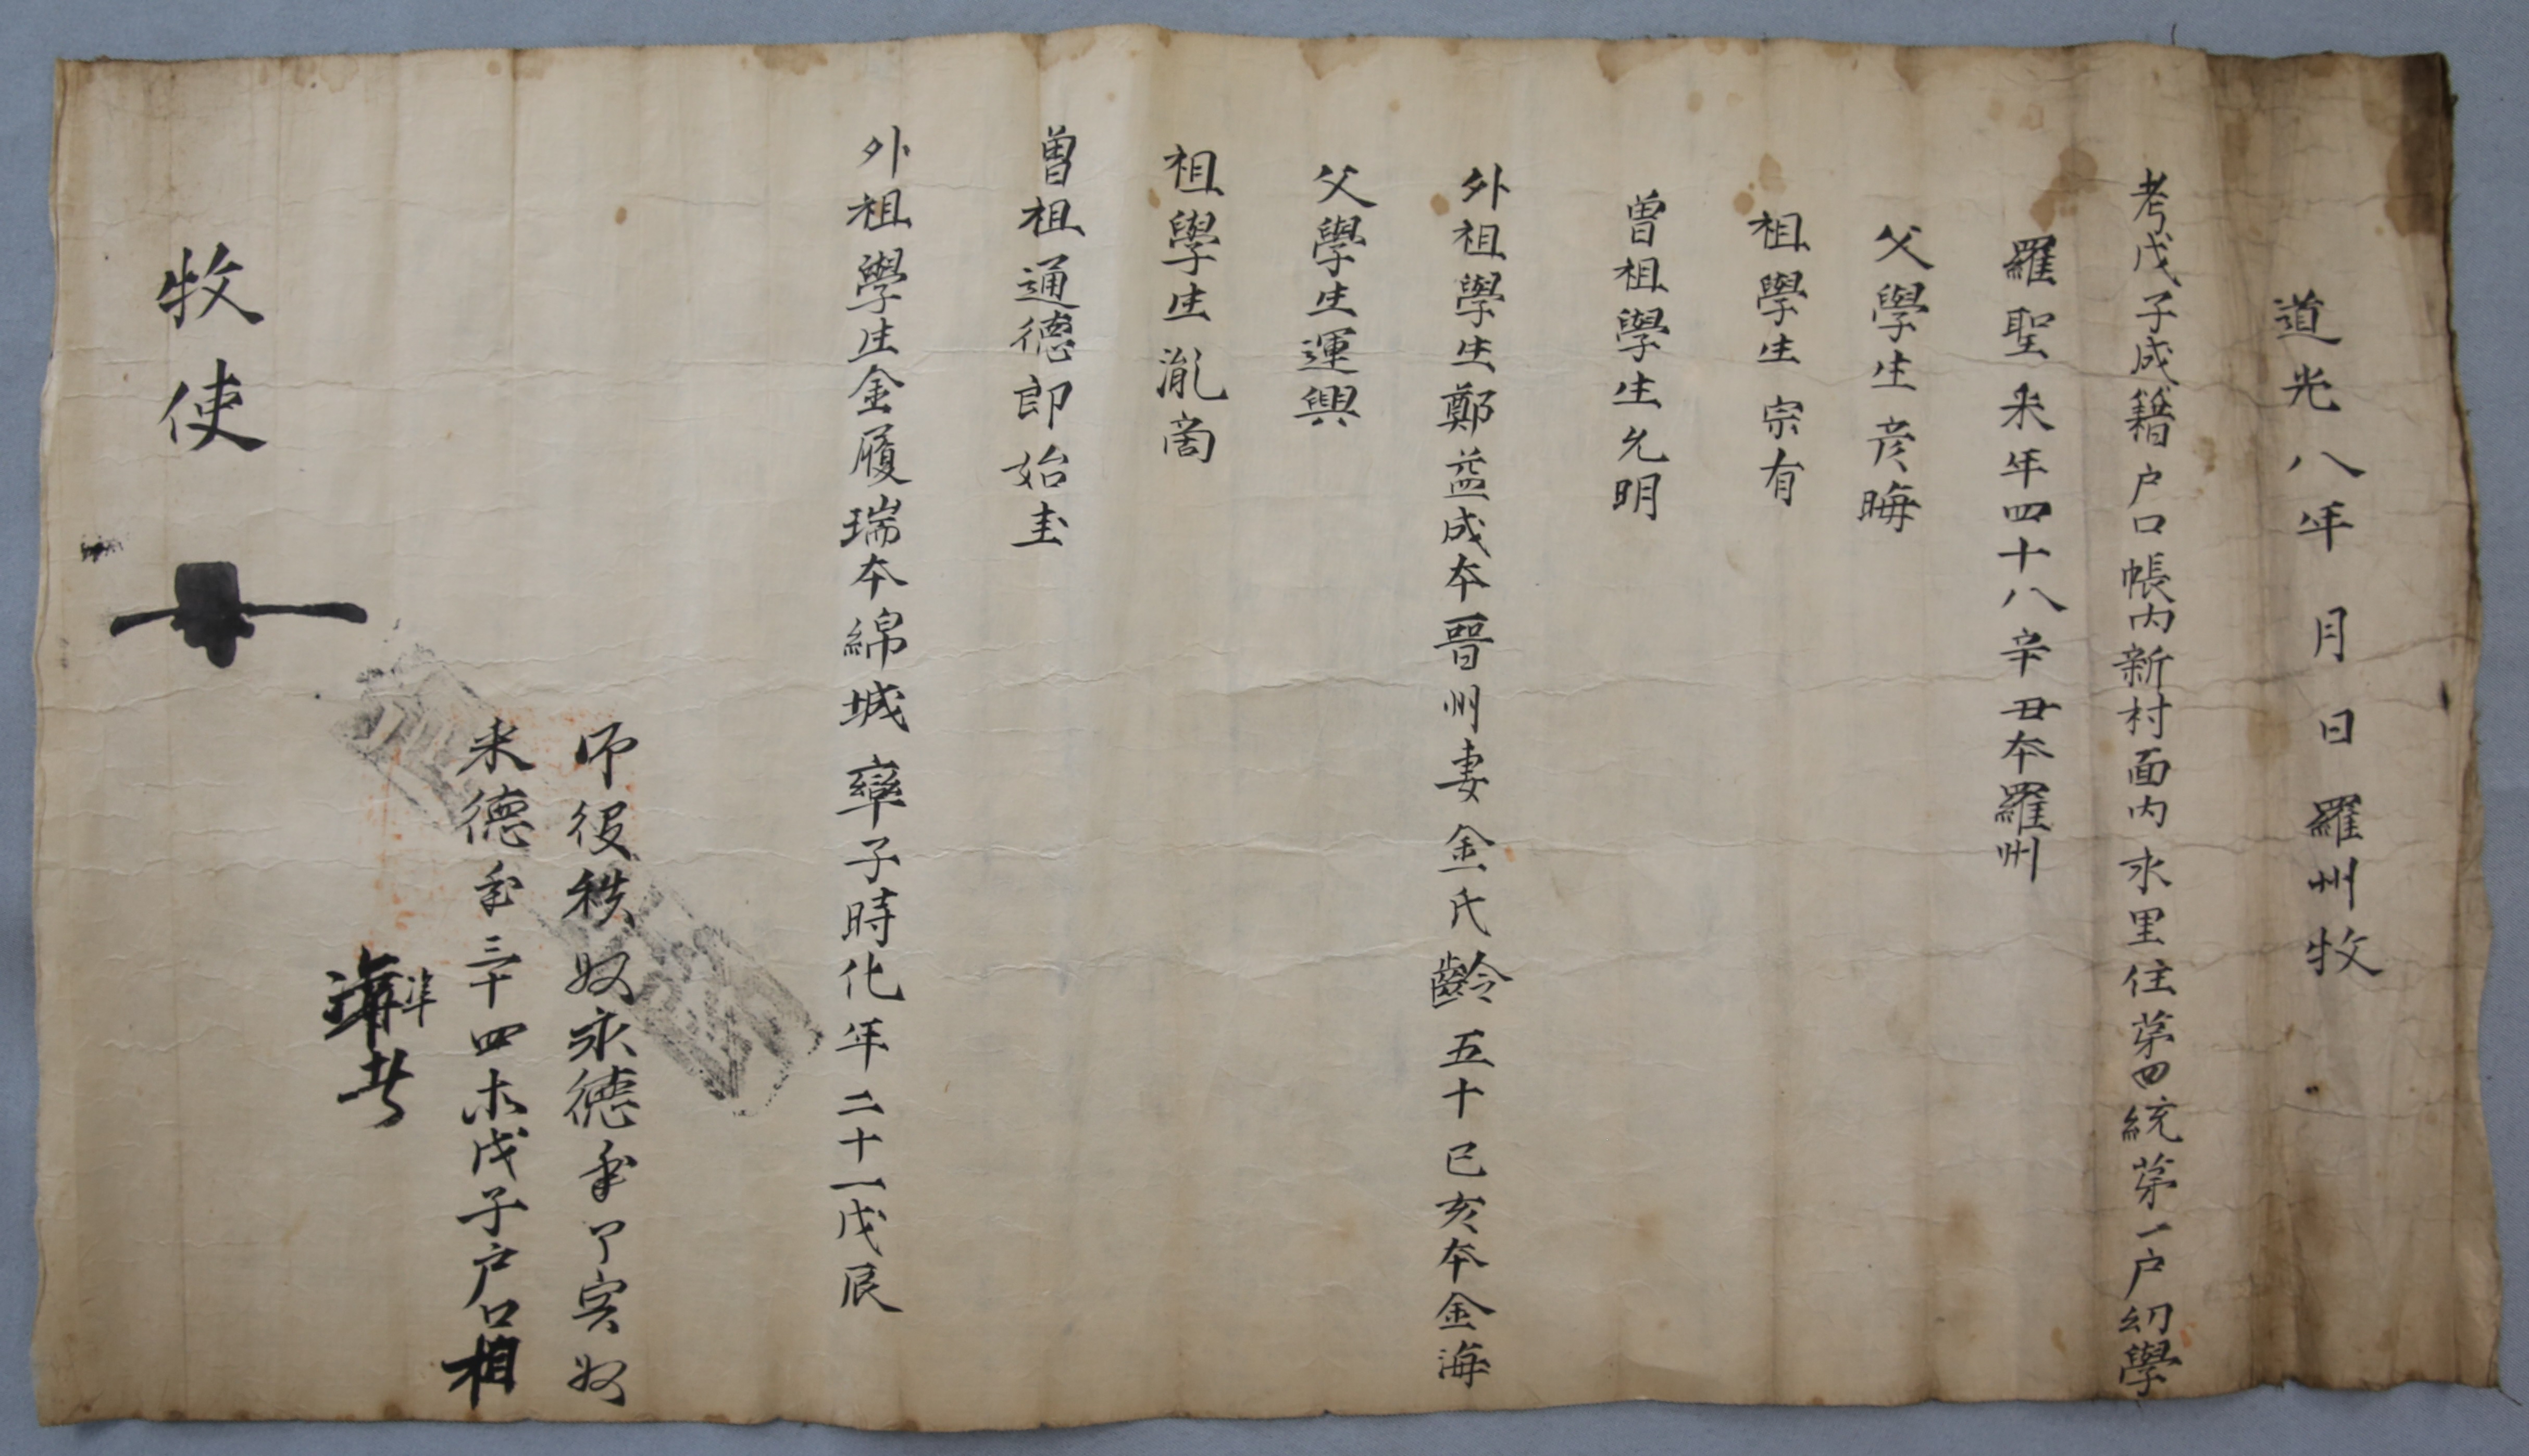 道光八年 月 日 羅州牧
考戊子成籍户口帳內新村面內永里住苐四統苐一户幼學
羅聖采年四十八辛丑本羅州
父學生彦晦
祖學生宗有
曾祖學生允明
外祖學生鄭益成本晉州妻金氏齡五十己亥本金海
父學生運興
祖學生胤啇
曾祖通德郎始圭
外祖學生金履瑞本綿城 率子時化年二十一戊辰
仰役秩奴永德年 奴
德年三十四 戊子户口相
準
牧使